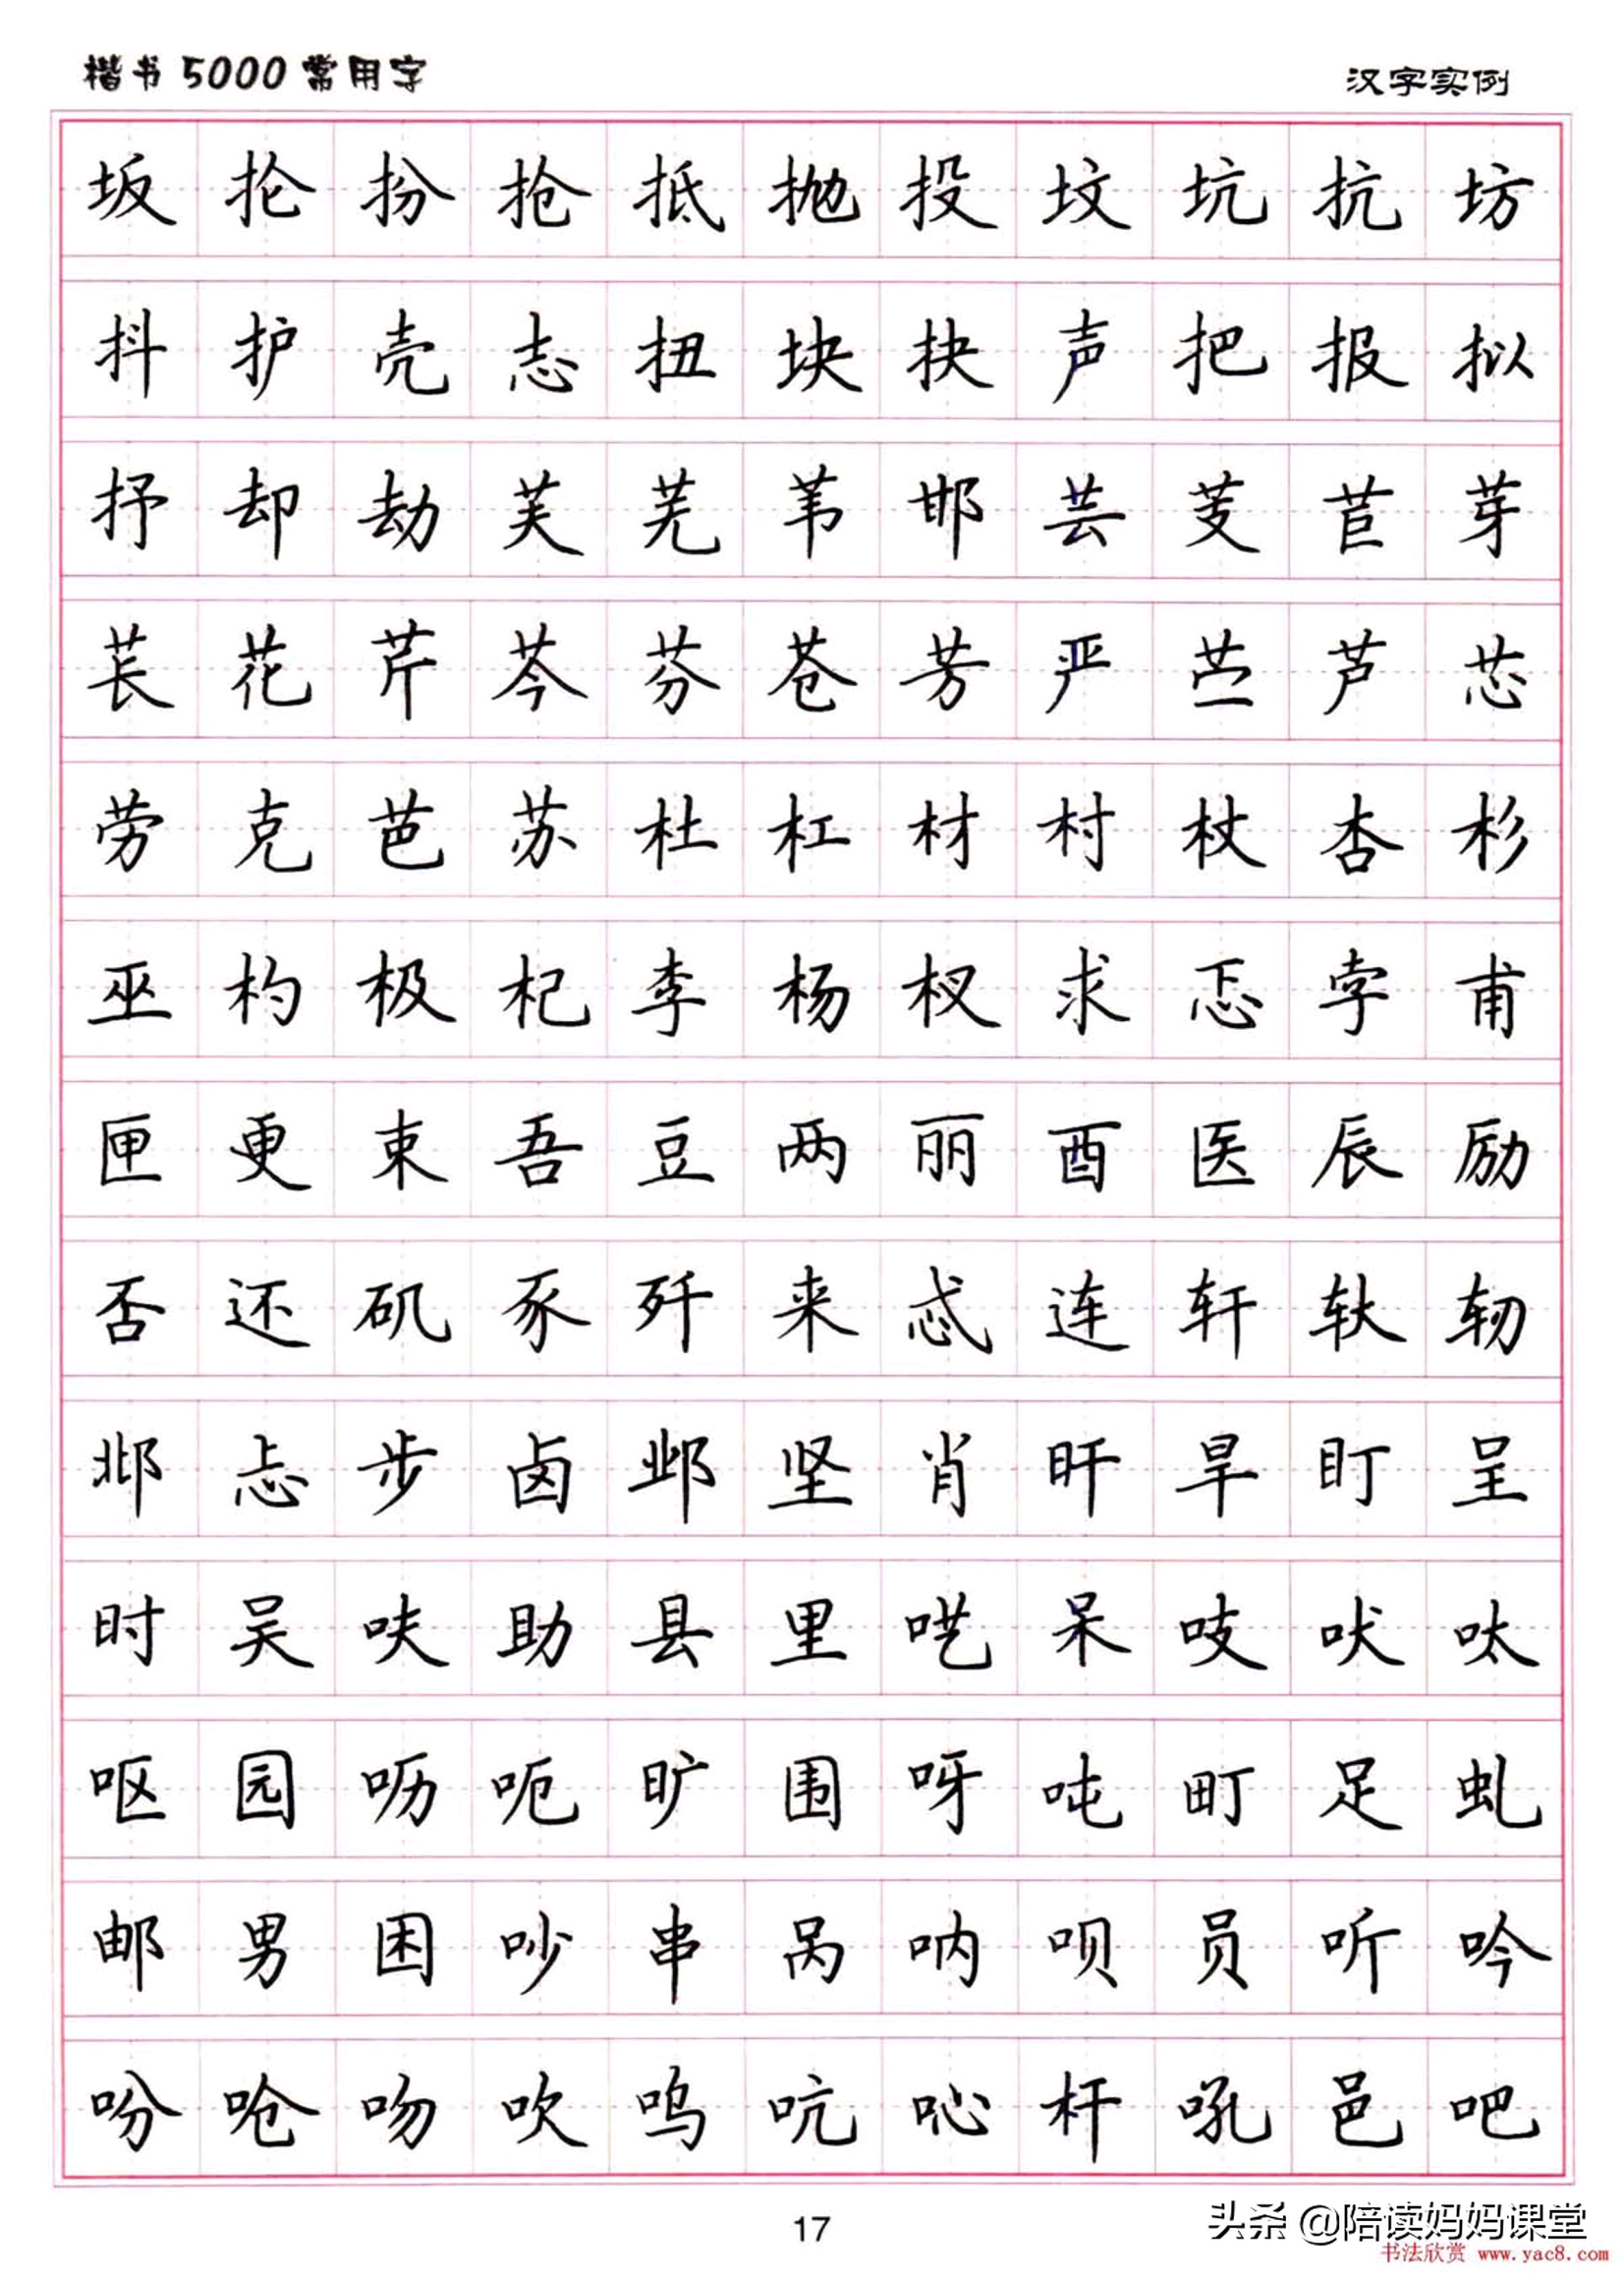 楷书5000常用字 汉字实例
坂 抡 扮 抢 抵 抛 投 坟 坑 抗 坊
抖 护 壳 志 扭 块 抉 声 把 报 拟
抒 却 劫 芙 芜 苇 邯 芸 芰 苣 芽
苌 花 芹 芩 芬 苍 芳 严 苎 芦 芯
劳 克 芭 苏 杜 杠 材 村 杖 杏 杉
巫 杓 极 杞 李 杨 杈 求 忑 孛 甫
匣 更 束 吾 豆 两 丽 酉 医 辰 励
否 还 矶 豕 歼 来 忒 连 轩 轪 轫
邶 忐 步 卤 邺 坚 肖 旰 旱 盯 呈
时 吴 呋 助 县 里 呓 呆 吱 吠 呔
呕 园 呖 呃 旷 围 呀 吨 町 足 虬
邮 男 困 吵 串 呙 呐 呗 员 听 吟
吩 呛 吻 吹 呜 吭 吣 杆 吼 邑 吧
17
头条 @陪读妈妈课堂
书法欣赏 www.yac8.com